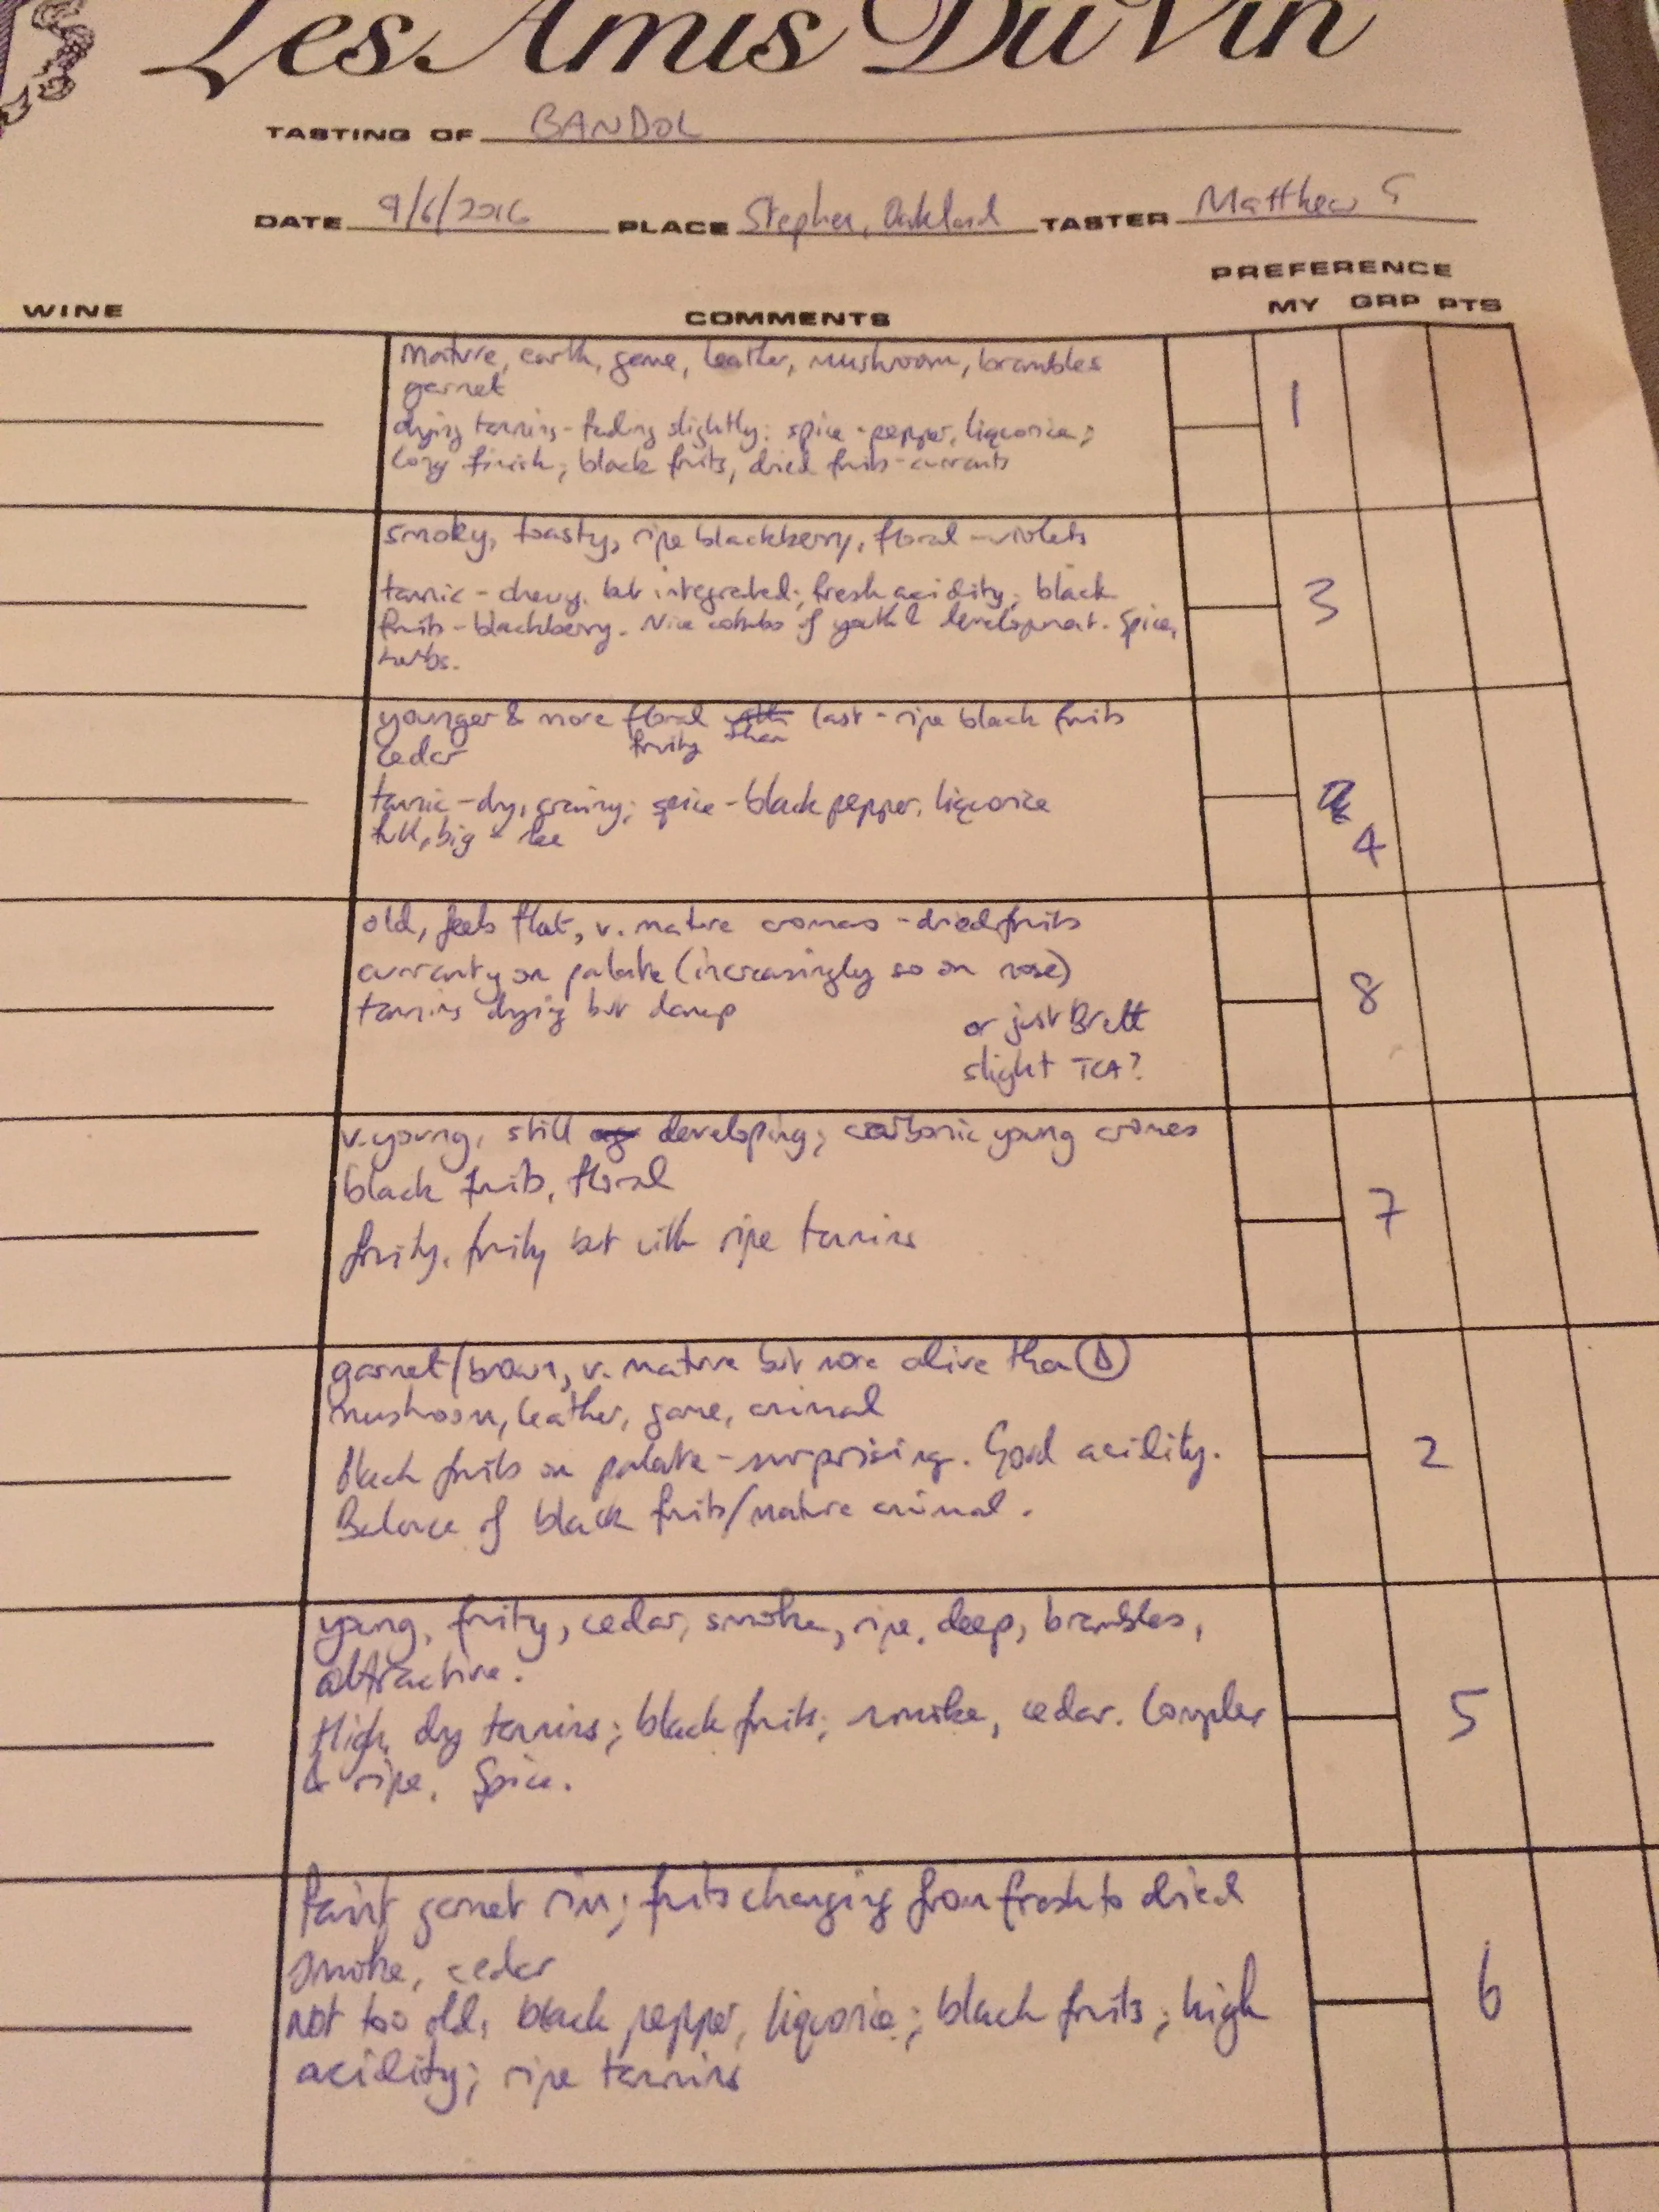 Les Amis Du Vin
TASTING OF BANDOL
DATE 9/6/2016 PLACE Stephen, Oakland TASTER Matthew G
PREFERENCE
WINE COMMENTS MY GRP PTS
Mature, earth, game, leather, mushroom, brambles
garnet
drying tannins - fading slightly; spice - pepper, liquorice;
long finish; black fruits, dried fruits - currants
1
smoky, toasty, ripe blackberry, floral - violets
tannic - chewy, but integrated; fresh acidity; black
fruits - blackberry. Nice combo of youth & development. Spice,
herbs.
3
younger & more floral than last - ripe black fruits
fruity
cedar
tannic - dry, grainy; spice - black pepper, liquorice
full, big
4
old, feels flat, v. mature aromas - dried fruits
curranty on palate (increasingly so on nose)
tannins drying but damp
or just Brett
slight TCA?
8
v. young, still developing; carbonic young aromas
black fruits, floral
fruity, fruity but with ripe tannins
7
garnet/brown, v. mature but more alive than D
mushroom, leather, game, animal
Black fruits on palate - surprising. Good acidity.
Balance of black fruits/mature animal.
2
young, fruity, cedar, smoke, ripe, deep, brambles,
attractive.
High, dry tannins; black fruits; smoke, cedar. Complex
& ripe. Spice.
5
Faint garnet rim; fruits changing from fresh to dried
smoke, cedar
not too old, black pepper, liquorice; black fruits; high
acidity; ripe tannins
6